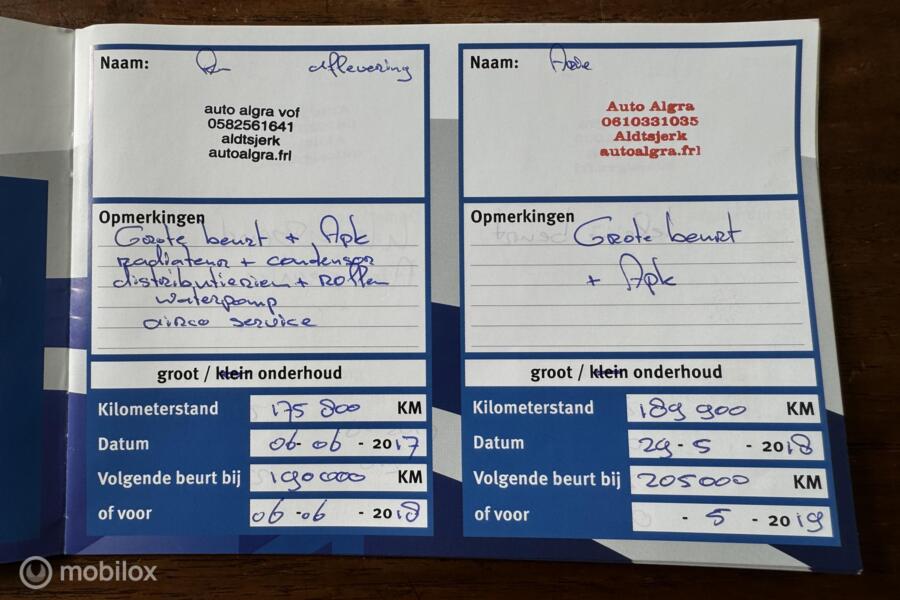 Naam: aflevering
auto algra vof
0582561641
aldtsjerk
autoalgra.frl
Opmerkingen
Grote beurt + Apk
radiateur + condensor
distributieriem + rollen
waterpomp
airco service
groot / klein onderhoud
Kilometerstand 175 800 KM
Datum 06-06 - 2017
Volgende beurt bij 190000 KM
of voor 06-06 - 2018
Naam:
Auto Algra
0610331035
Aldtsjerk
autoalgra.frl
Opmerkingen
Grote beurt
+ Apk
groot / klein onderhoud
Kilometerstand 189 900 KM
Datum 29-5 - 2018
Volgende beurt bij 205000 KM
of voor - 5 - 2019
mobilox